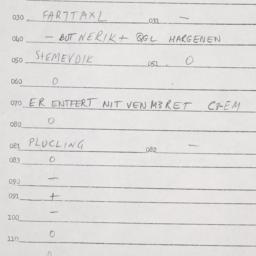 030 FARTTAXL 031 —
040 — BUT NERIK + QGL HARGENEN
050 SIEMEVDIK 051 O
060 O
070 ER ENTFERT NIT VEN M3RET CREM
080 O
081 PLUCLING 082 —
083 O
090 —
091 +
100 —
O
110
O